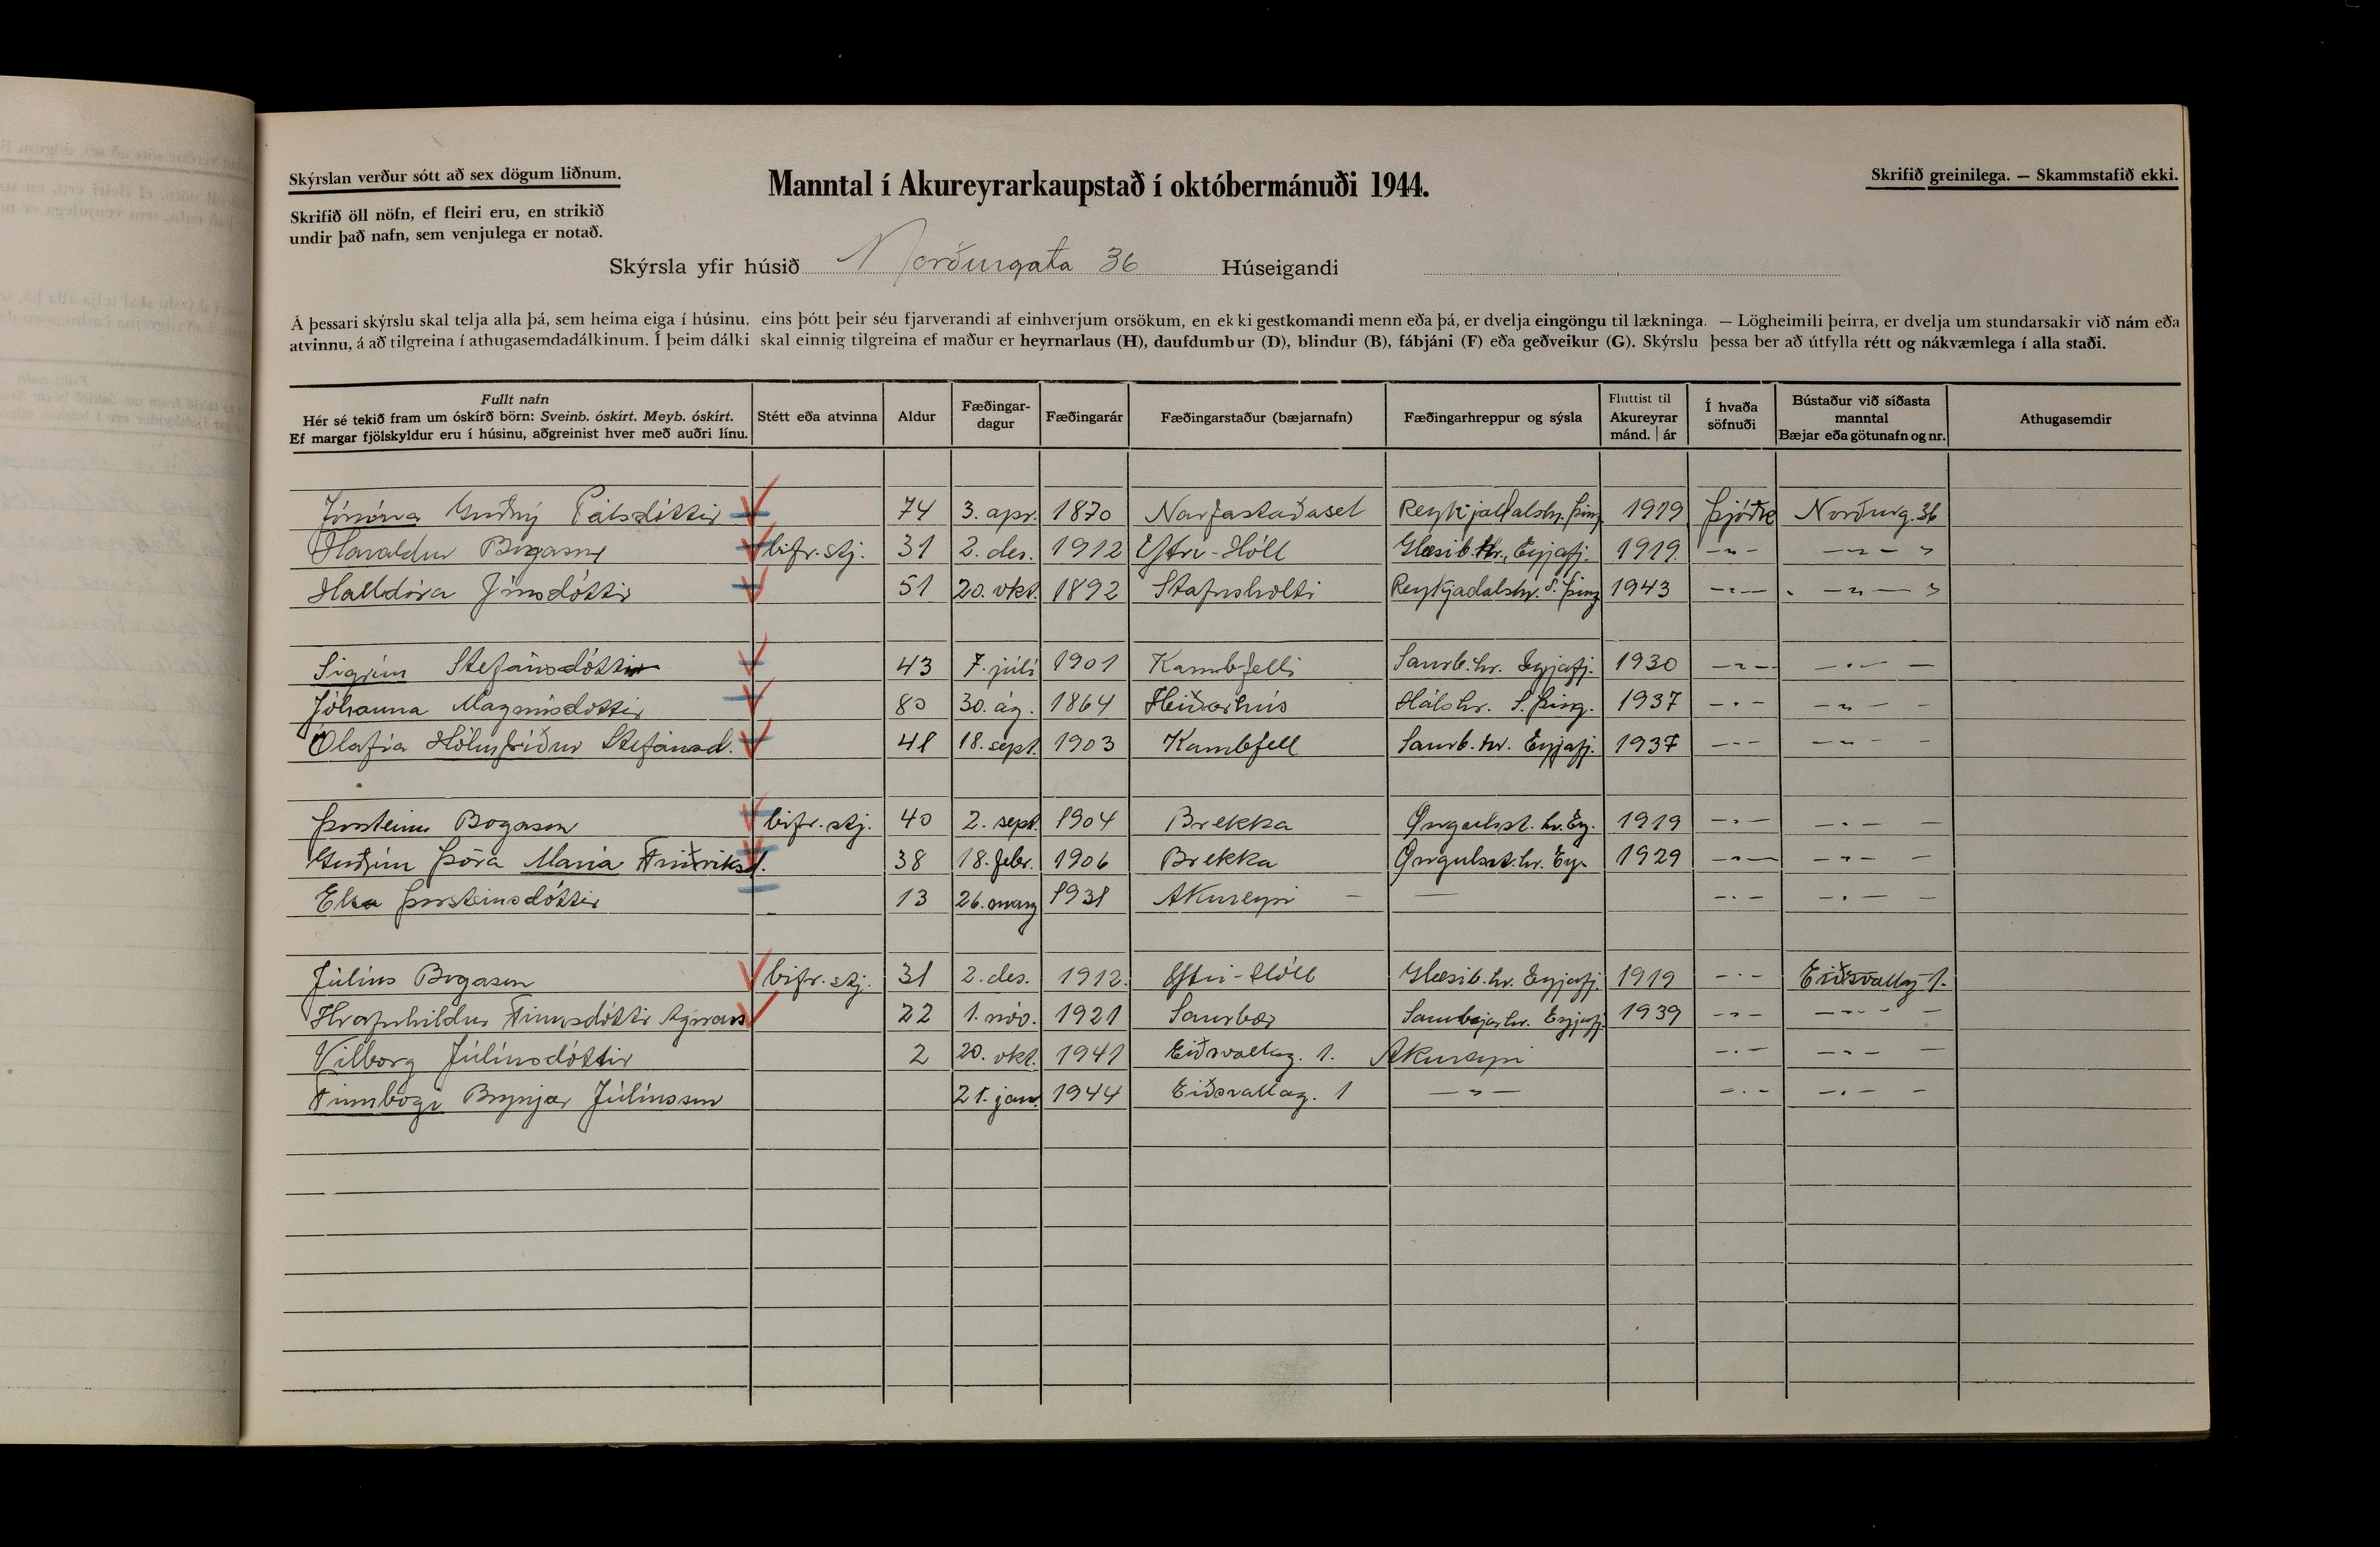 Skýrslan verður sótt að sex dögum liðnum.
Manntal í Akureyrarkaupstað í októbermánuði 1944.
Skrifið greinilega. — Skammstafið ekki.
Skrifið öll nöfn, ef fleiri eru, en strikið
undir það nafn, sem venjulega er notað.
Skýrsla yfir húsið Norðurgata 36 Húseigandi
Á þessari skýrslu skal telja alla þá, sem heima eiga í húsinu, eins þótt þeir séu fjarverandi af einhverjum orsökum, en ekki gestkomandi menn eða þá, er dvelja eingöngu til lækninga. — Lögheimili þeirra, er dvelja um stundarsakir við nám eða
atvinnu, á að tilgreina í athugasemdadálkinum. Í þeim dálki skal einnig tilgreina ef maður er heyrnarlaus (H), daufdumbur (D), blindur (B), fábjáni (F) eða geðveikur (G). Skýrslu þessa ber að útfylla rétt og nákvæmlega í alla staði.
Fullt nafn
Hér sé tekið fram um óskírð börn: Sveinb. óskírt. Meyb. óskírt.
Ef margar fjölskyldur eru í húsinu, aðgreinist hver með auðri línu.
Stétt eða atvinna
Aldur
Fæðingar-
dagur
Fæðingarár
Fæðingarstaður (bæjarnafn)
Fæðingarhreppur og sýsla
Fluttist til
Akureyrar
mánd. | ár
Í hvaða
söfnuði
Bústaður við síðasta
manntal
Bæjar eða götunafn og nr.
Athugasemdir
Jónína Guðný Pálsdóttir 74 3. apr. 1870 Narfastaðasel Reykjadalshr. Þing 1919 Þjóðk Norðurg. 36
Haraldur Bogason bifr.stj. 31 2. des. 1912 Ytri-Hóll Glæsib.hr. Eyjafj. 1919 -"- -"- "
Halldóra Jónsdóttir 51 20. okt. 1892 Stafnsholti Reykjadalshr. S. Þing 1943 -"- -"- "
Sigrún Stefánsdóttir 43 7. júlí 1901 Kambfelli Saurb.hr. Eyjafj. 1930 -"- -"- -
Jóhanna Magnúsdóttir 80 30. ág. 1864 Heiðarhús Hálshr. S. Þing. 1937 -"- -"- -
Ólafía Hólmfríður Stefánsd. 41 18. sept. 1903 Kambfell Saurb.hr. Eyjafj. 1937 -"- -"- -
Þorsteinn Bogason bifr.stj. 40 2. sept. 1904 Brekka Öngulsst.hr. Ey. 1919 -"- -"- -
Guðrún Þóra María Friðriksd. 38 18. febr. 1906 Brekka Öngulsst.hr. Ey. 1929 -"- -"- -
Elsa Þorsteinsdóttir 13 26. marz 1931 Akureyri - -"- -"- -
Júlíus Bogason bifr.stj. 31 2. des. 1912 Ytri-Hóll Glæsib.hr. Eyjafj. 1919 -"- Eiðsvallag 1.
Hrafnhildur Finnsdóttir 22 1. nóv. 1921 Saurbær Saurbæjarhr. Eyjafj. 1939 -"- -"- -
Vilborg Júlíusdóttir 2 20. okt. 1941 Eiðsvallag. 1. Akureyri -"- -"- -
Finnbogi Brynjar Júlíusson 21. jan. 1944 Eiðsvallag. 1 -"- -"- -"- -